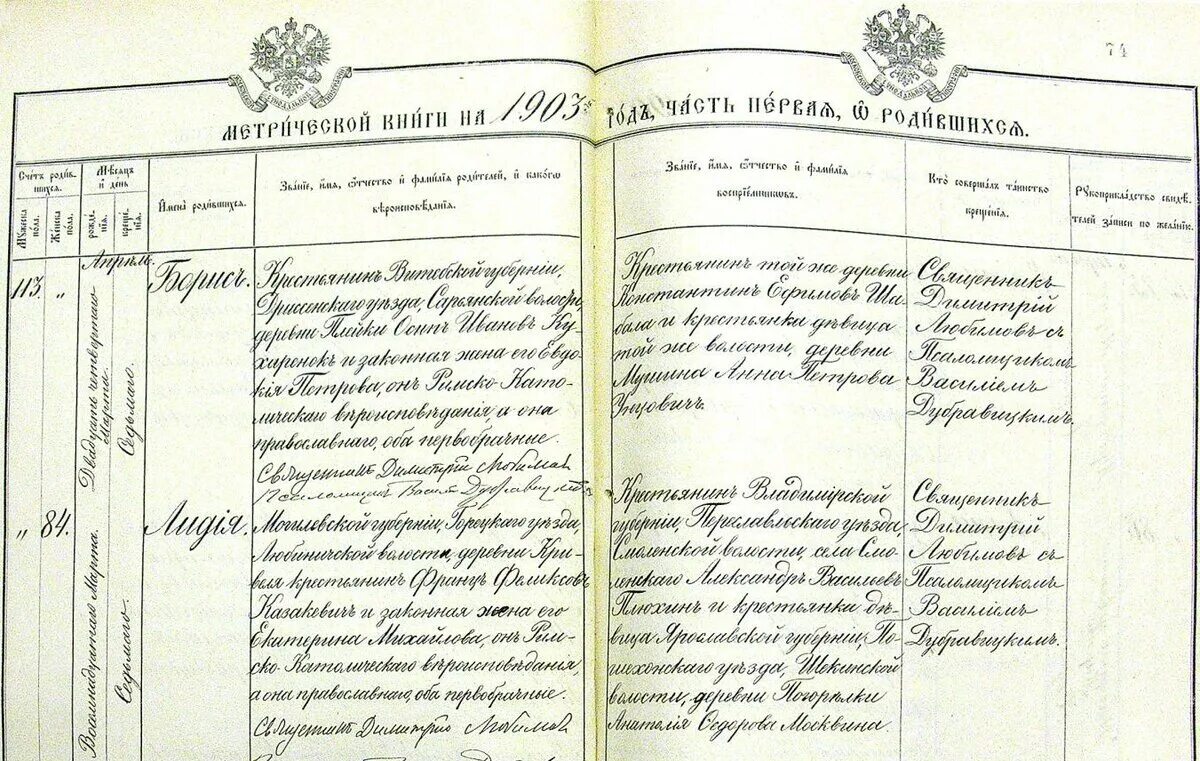 74
МЕТРИЧЕСКОЙ КНИГИ НА 1903й ГОДЪ, ЧАСТЬ ПЕРВАЯ, Ѿ РОДИВШИХСЯ.
Счетъ родив-
шихся.
Мѹжеска пола.
Женска пола.
Мѣсяцъ и день
рожде-
нія.
креще-
нія.
Имена родившихся.
Званіе, имя, ѿчество и фамилія родителей, и какого
вѣроисповѣданія.
Званіе, имя, ѿчество и фамилія
воспріемниковъ.
Кто совершалъ таинство
крещенія.
Рѹкоприкладство свидѣ-
телей записи по желанію.
Апрѣль.
113.
„
Двадцать четвертаго
Марта.
Седьмаго.
Борисъ.
Крестьянинъ Витебской губерніи,
Дриссенскаго уѣзда, Сарьянской волости,
деревни Плейки Осипъ Ивановъ Ку-
харенокъ и законная жена его Евдо-
кія Петрова, онъ Римско-Като-
лическаго вѣроисповѣданія, а она
православнаго, оба первобрачные.
Священникъ Димитрій Любимов
Псаломщикъ Василій
Крестьянинъ той же деревни
Константинъ Ефимовъ Ша-
бала и крестьянка дѣвица
той же волости, деревни
Мушина Анна Петрова
Священникъ
Димитрій
Любимовъ съ
Псаломщикомъ
Василіемъ
Дубравицкимъ.
„
84.
Восемнадцатаго Марта.
Седьмаго.
Лидія.
Могилевской губерніи, Горецкаго уѣзда,
Любиничской волости, деревни Кри-
веля крестьянинъ Францъ Феликсовъ
Казакевичъ и законная жена его
Екатерина Михайлова, онъ Рим-
ско-Католическаго вѣроисповѣданія,
а она православнаго, оба первобрачные.
Священникъ Димитрій Любимов
Крестьянинъ Владимірской
губерніи, Переславльскаго уѣзда,
Смоленской волости, села Смо-
ленскаго Александръ Васильевъ
Плюхинъ и крестьянка дѣ-
вица Ярославской губерніи, По-
шехонскаго уѣзда, Щекинской
волости, деревни Погорѣлки
Анатолія Ѳедорова Москвина.
Священникъ
Димитрій
Любимовъ съ
Псаломщикомъ
Василіемъ
Дубравицкимъ.